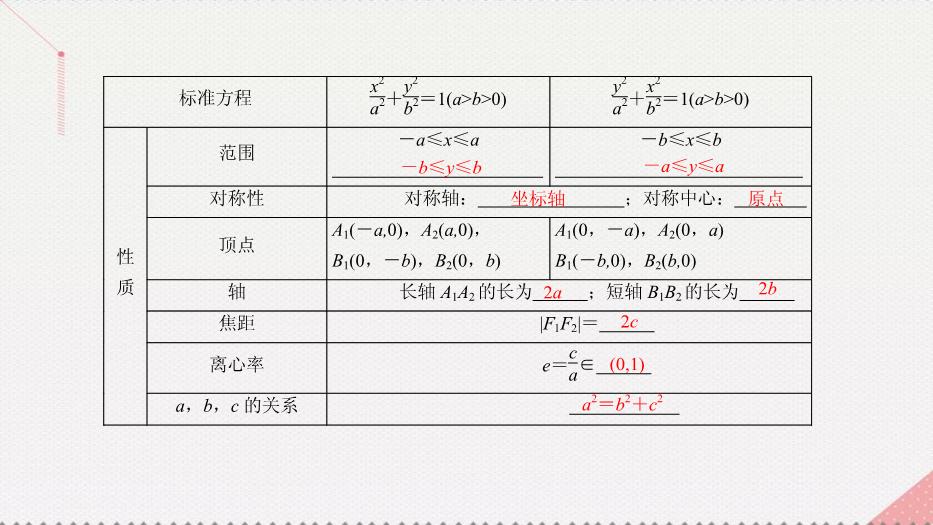 标准方程 x²/a²＋y²/b²＝1(a>b>0) y²/a²＋x²/b²＝1(a>b>0)
性质
范围
－a≤x≤a
－b≤y≤b
－b≤x≤b
－a≤y≤a
对称性 对称轴：坐标轴；对称中心：原点
顶点
A₁(－a,0)，A₂(a,0)，
B₁(0，－b)，B₂(0，b)
A₁(0，－a)，A₂(0，a)
B₁(－b,0)，B₂(b,0)
轴 长轴 A₁A₂ 的长为 2a；短轴 B₁B₂ 的长为 2b
焦距 |F₁F₂|＝2c
离心率 e＝c/a∈(0,1)
a，b，c 的关系 a²＝b²＋c²